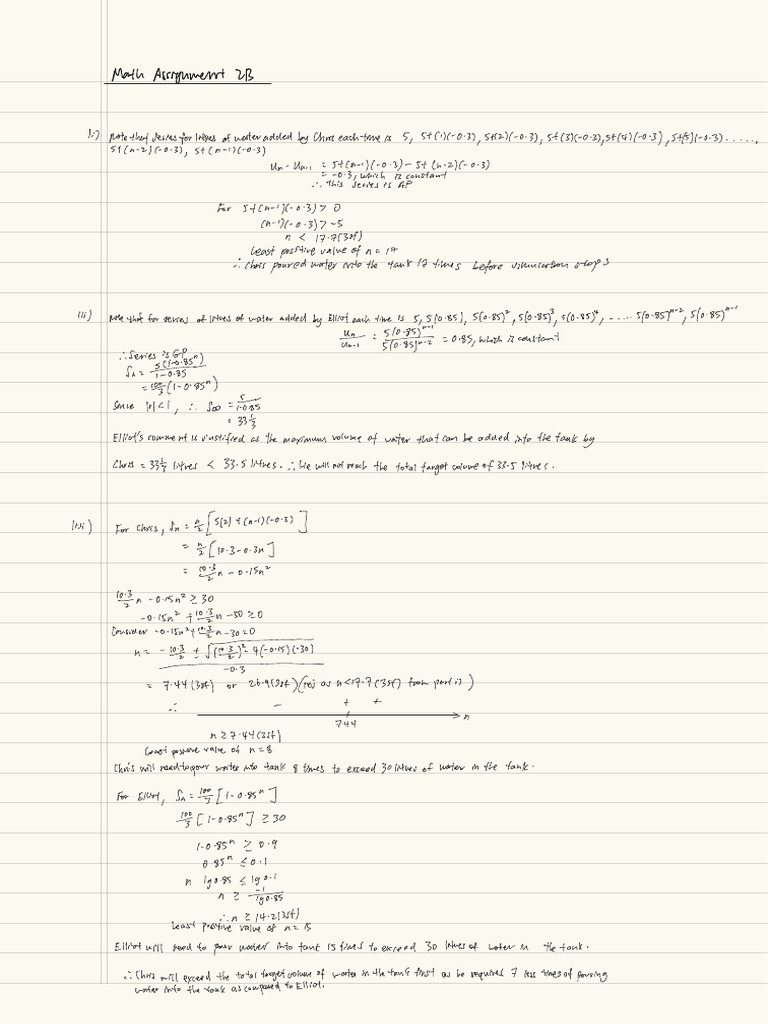 Math Assignment 2B
1i) Note that series for litres of water added by Chris each time is 5, 5+(1)(-0.3), 5+(2)(-0.3), 5+(3)(-0.3), 5+(4)(-0.3), 5+(5)(-0.3) ......,
5+(n-2)(-0.3), 5+(n-1)(-0.3)
Un - Un-1 = 5+(n-1)(-0.3) - 5+(n-2)(-0.3)
= -0.3, which is constant
∴ This series is AP
For 5+(n-1)(-0.3) > 0
(n-1)(-0.3) > -5
n < 17.7 (3sf)
Least positive value of n = 17
∴ Chris poured water into the tank 17 times before simulation stops
1ii) Note that for series of litres of water added by Elliot each time is 5, 5(0.85), 5(0.85)², 5(0.85)³, 5(0.85)⁴, ..... 5(0.85)ⁿ⁻², 5(0.85)ⁿ⁻¹
Un/Un-1 = 5(0.85)ⁿ⁻¹/5(0.85)ⁿ⁻² = 0.85, which is constant
∴ Series is GP
Sn = 5(1-0.85ⁿ)/1-0.85
= 100/3 (1-0.85ⁿ)
Since |r|<1, ∴ S∞ = 5/1-0.85
= 33 1/3
Elliot's comment is justified as the maximum volume of water that can be added into the tank by
Chris = 33 1/3 litres < 33.5 litres. ∴ He will not reach the total target volume of 33.5 litres.
1iii) For Chris, Sn = n/2 [5(2)+(n-1)(-0.3)]
= n/2 [10.3-0.3n]
= 10.3/2 n - 0.15n²
10.3/2 n - 0.15n² ≥ 30
-0.15n² + 10.3/2 n - 30 ≥ 0
Consider -0.15n² + 10.3/2 n - 30 = 0
n = -10.3/2 ± √((10.3/2)² - 4(-0.15)(-30)) / -0.3
= 7.44 (3sf) or 26.9 (3sf) (rej as n<17.7 (3sf) from part i)
∴ - + +
7.44 n
n ≥ 7.44 (3sf)
Least positive value of n = 8
Chris will need to pour water into tank 8 times to exceed 30 litres of water in the tank.
For Elliot, Sn = 100/3 [1-0.85ⁿ]
100/3 [1-0.85ⁿ] ≥ 30
1-0.85ⁿ ≥ 0.9
0.85ⁿ ≤ 0.1
n lg0.85 ≤ lg0.1
n ≥ -1/lg0.85
∴ n ≥ 14.2 (3sf)
Least positive value of n = 15
Elliot will need to pour water into tank 15 times to exceed 30 litres of water in the tank.
∴ Chris will exceed the total target volume of water in the tank first as he requires 7 less times of pouring
water into the tank as compared to Elliot.